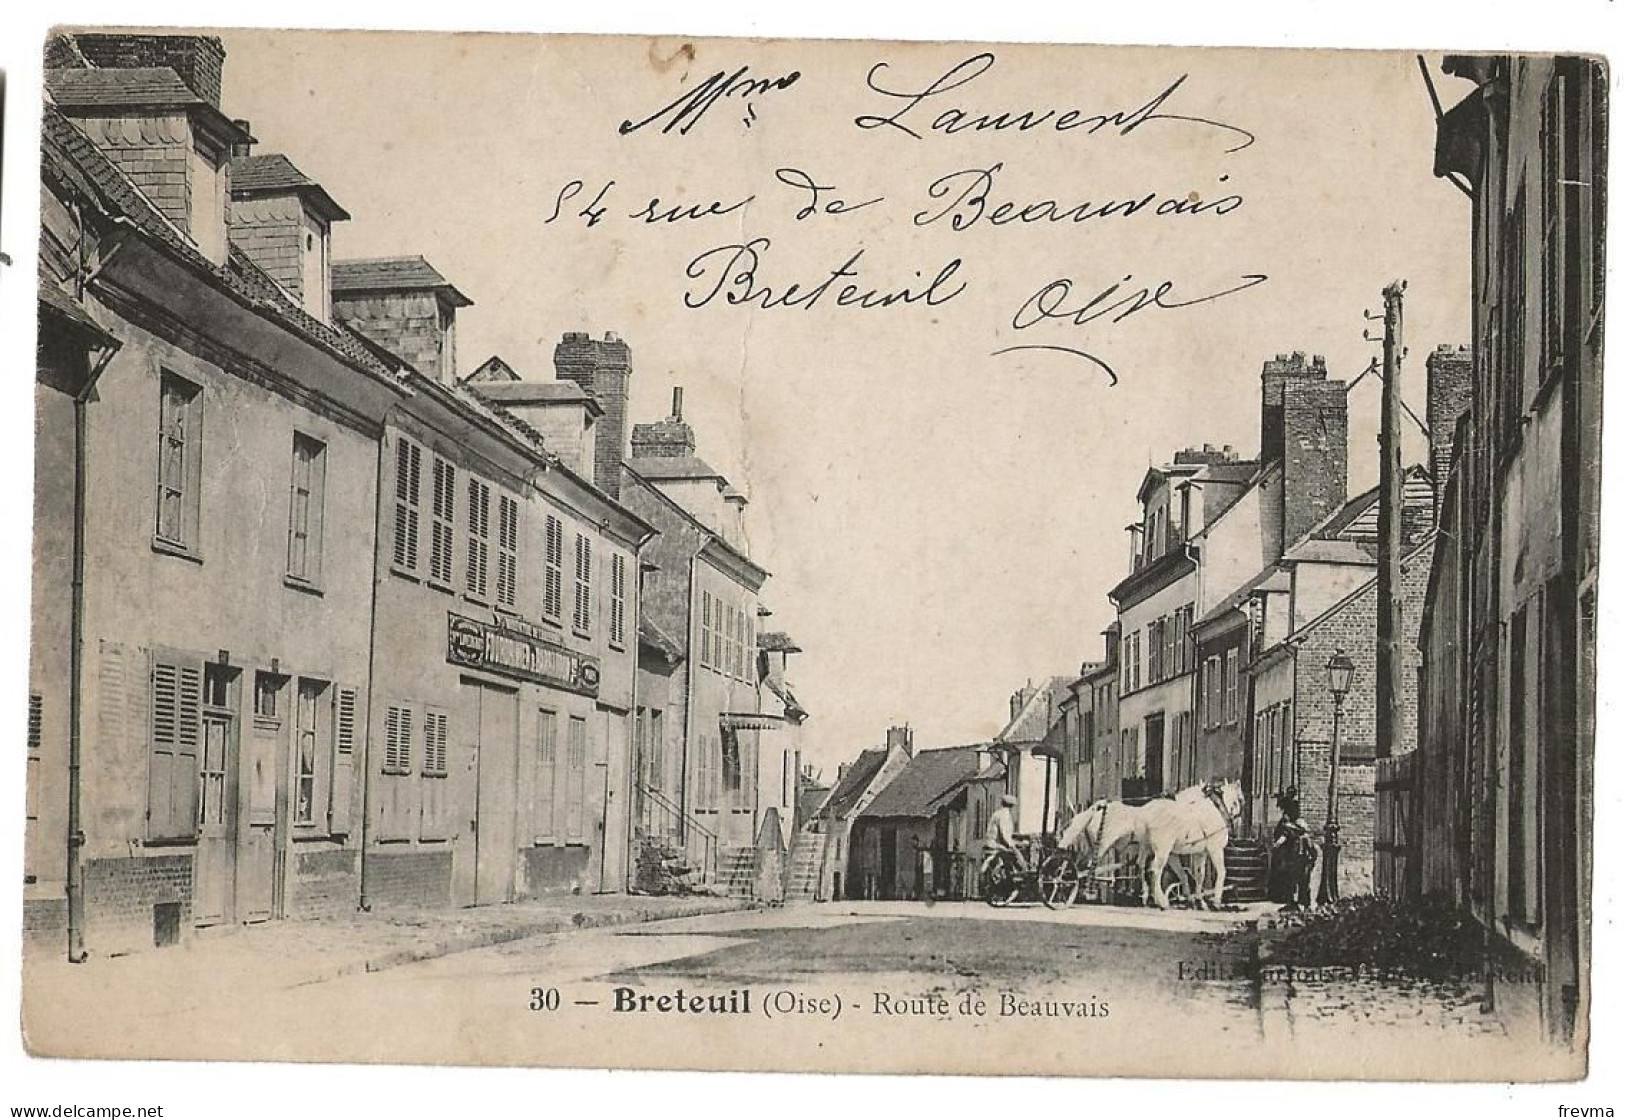 Mme Lauvent
54 rue de Beauvais
Breteuil Oise
30 — Breteuil (Oise) - Route de Beauvais
Edit. Breteuil
delcampe.net
frevma